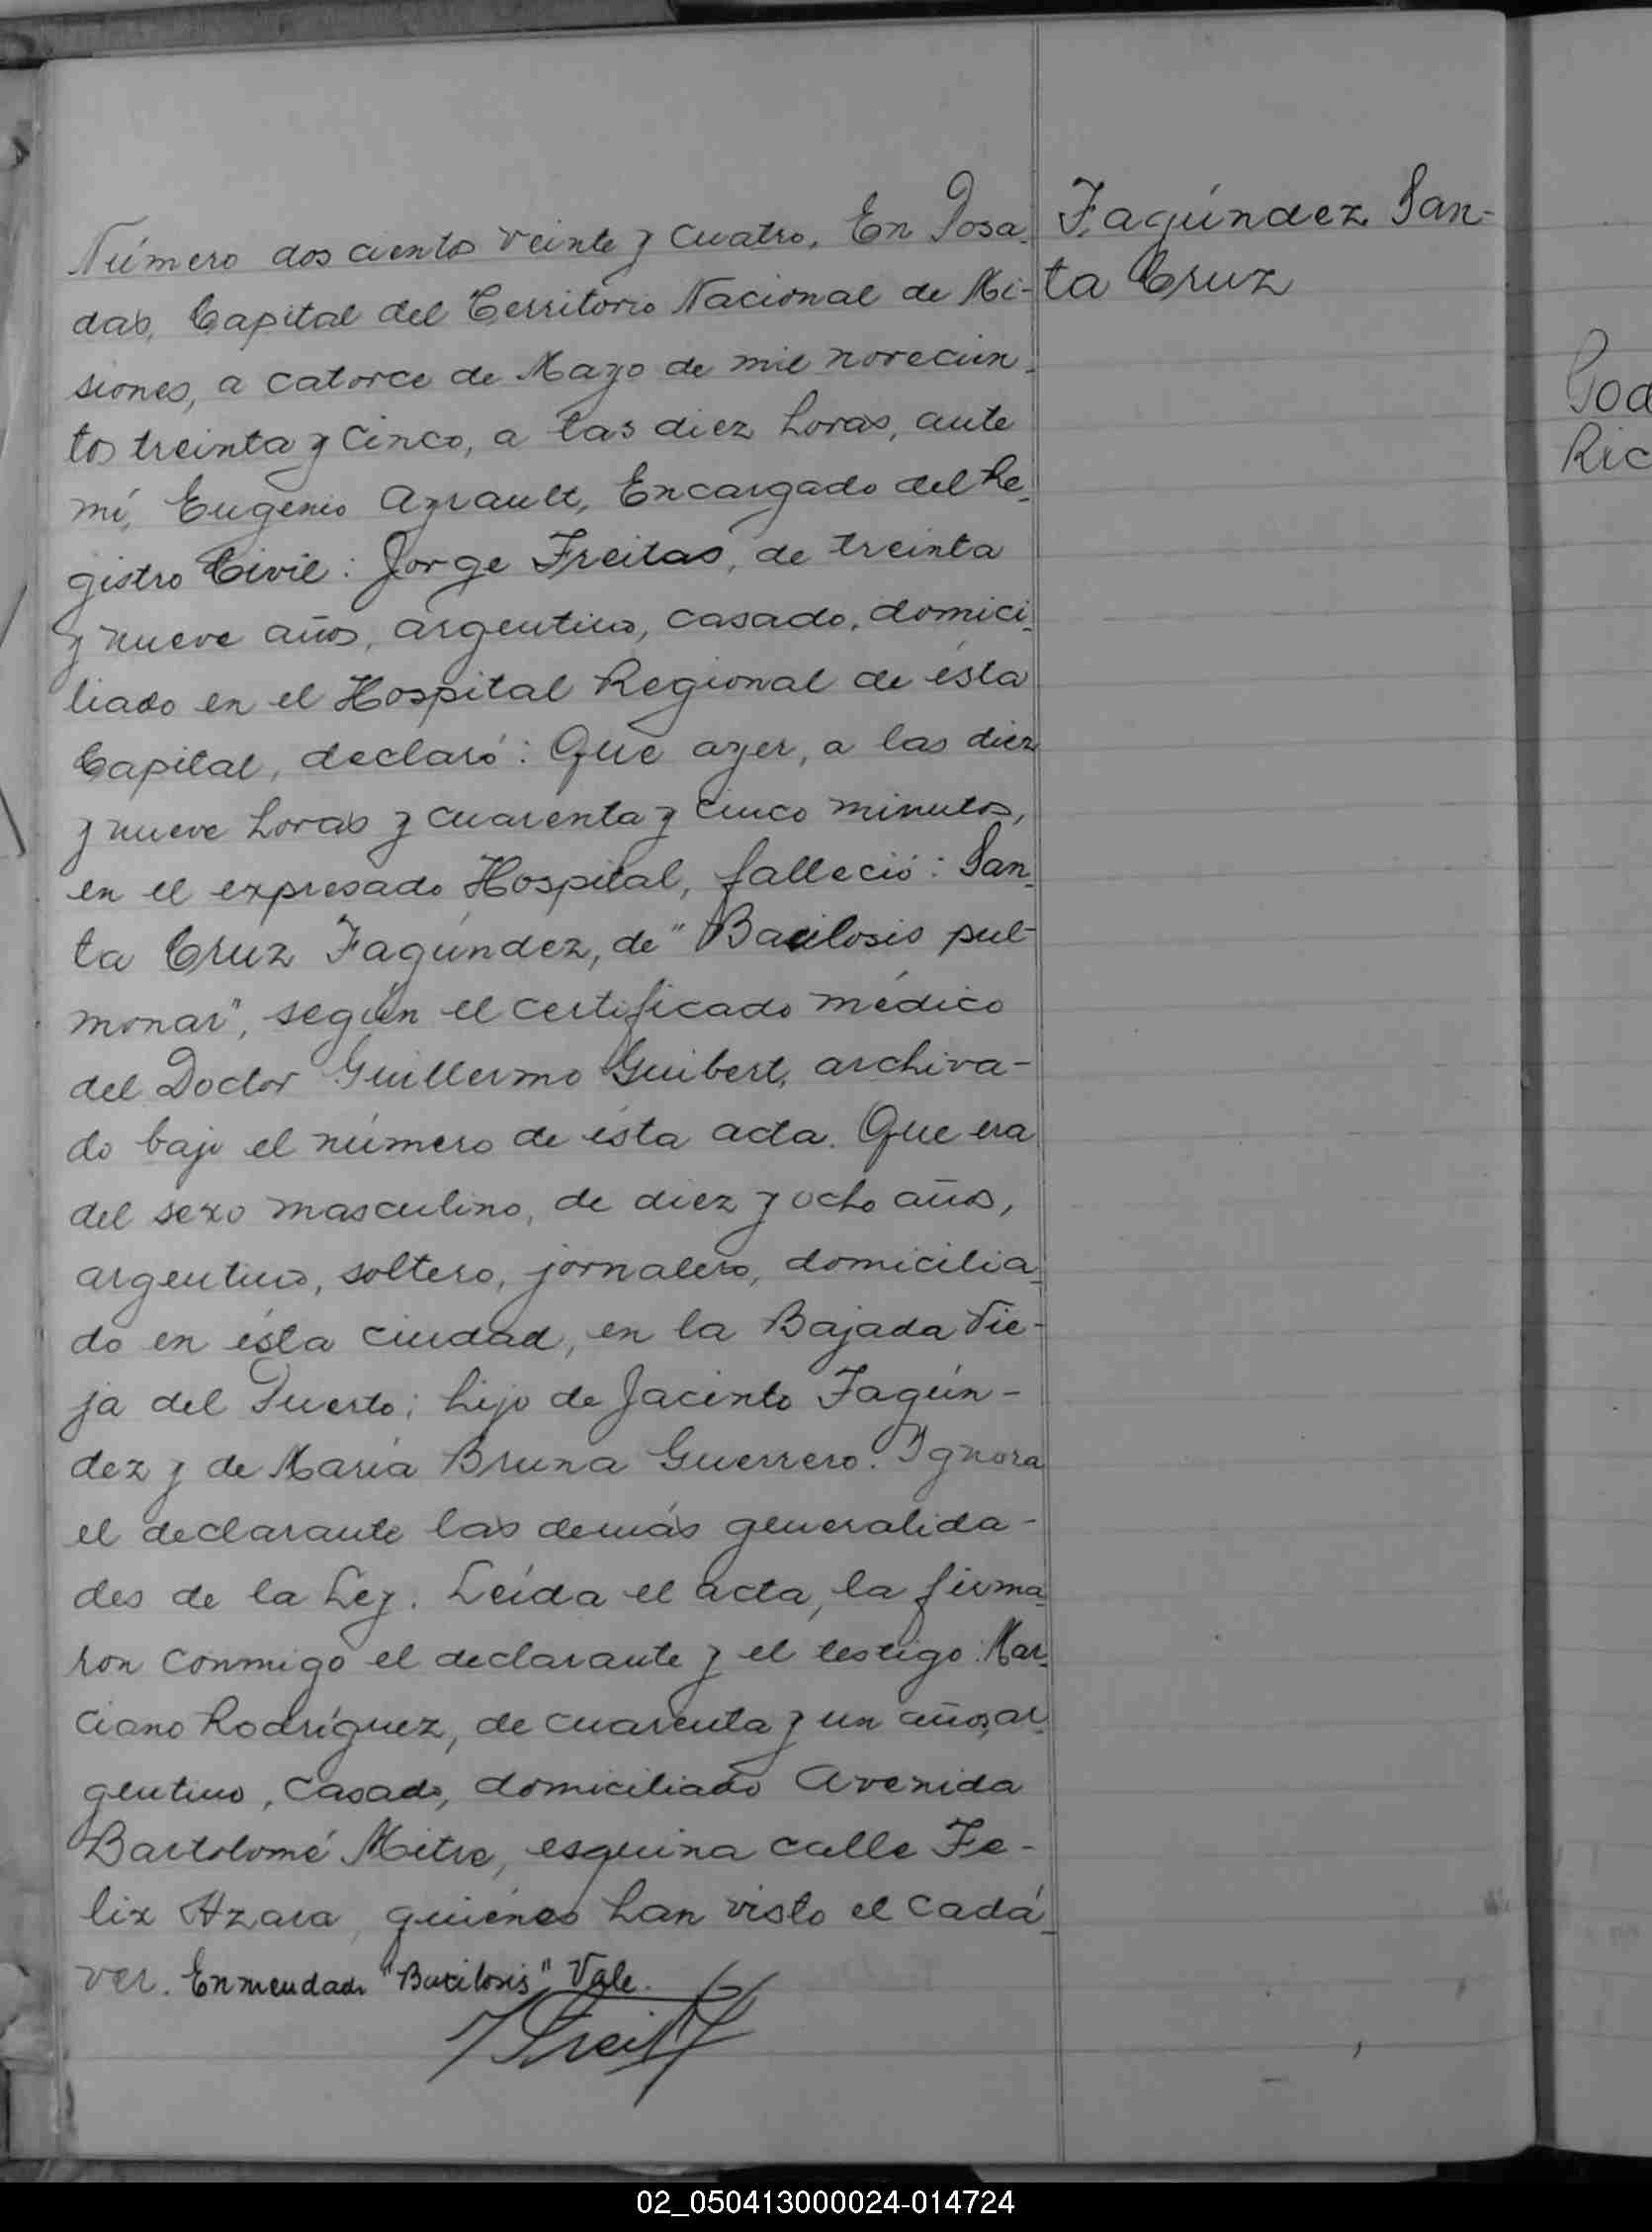 Número dos ciento veinte y cuatro. En Posa-
das, Capital del Territorio Nacional de Mi-
siones, a catorce de Mayo de mil novecien-
tos treinta y cinco, a las diez horas, ante
mí, Eugenio Ayrault, Encargado del Re-
gistro Civil: Jorge Freitas, de treinta
y nueve años, argentino, casado, domici-
liado en el Hospital Regional de ésta
Capital, declaró: Que ayer, a las diez
y nueve horas y cuarenta y cinco minutos,
en el expresado Hospital, falleció: San-
ta Cruz Fagúndez, de "Bacilosis pul-
monar", según el certificado médico
del Doctor Guillermo Guibert, archiva-
do bajo el número de ésta acta. Que era
del sexo masculino, de diez y ocho años,
argentino, soltero, jornalero, domicilia-
do en ésta ciudad, en la Bajada Vie-
ja del Puerto; hijo de Jacinto Fagún-
dez y de María Bruna Guerrero. Ignora
el declarante las demás generalida-
des de la Ley. Leída el acta, la firma-
ron conmigo el declarante y el testigo: Mar-
ciano Rodríguez, de cuarenta y un años, ar-
gentino, casado, domiciliado Avenida
Bartolomé Mitre, esquina calle Fe-
lix Azara, quiénes han visto el cadá-
ver. Enmendado "Bacilosis" Vale.
J Freitas
Fagúndez San-
ta Cruz
God
Ric
02_050413000024-014724